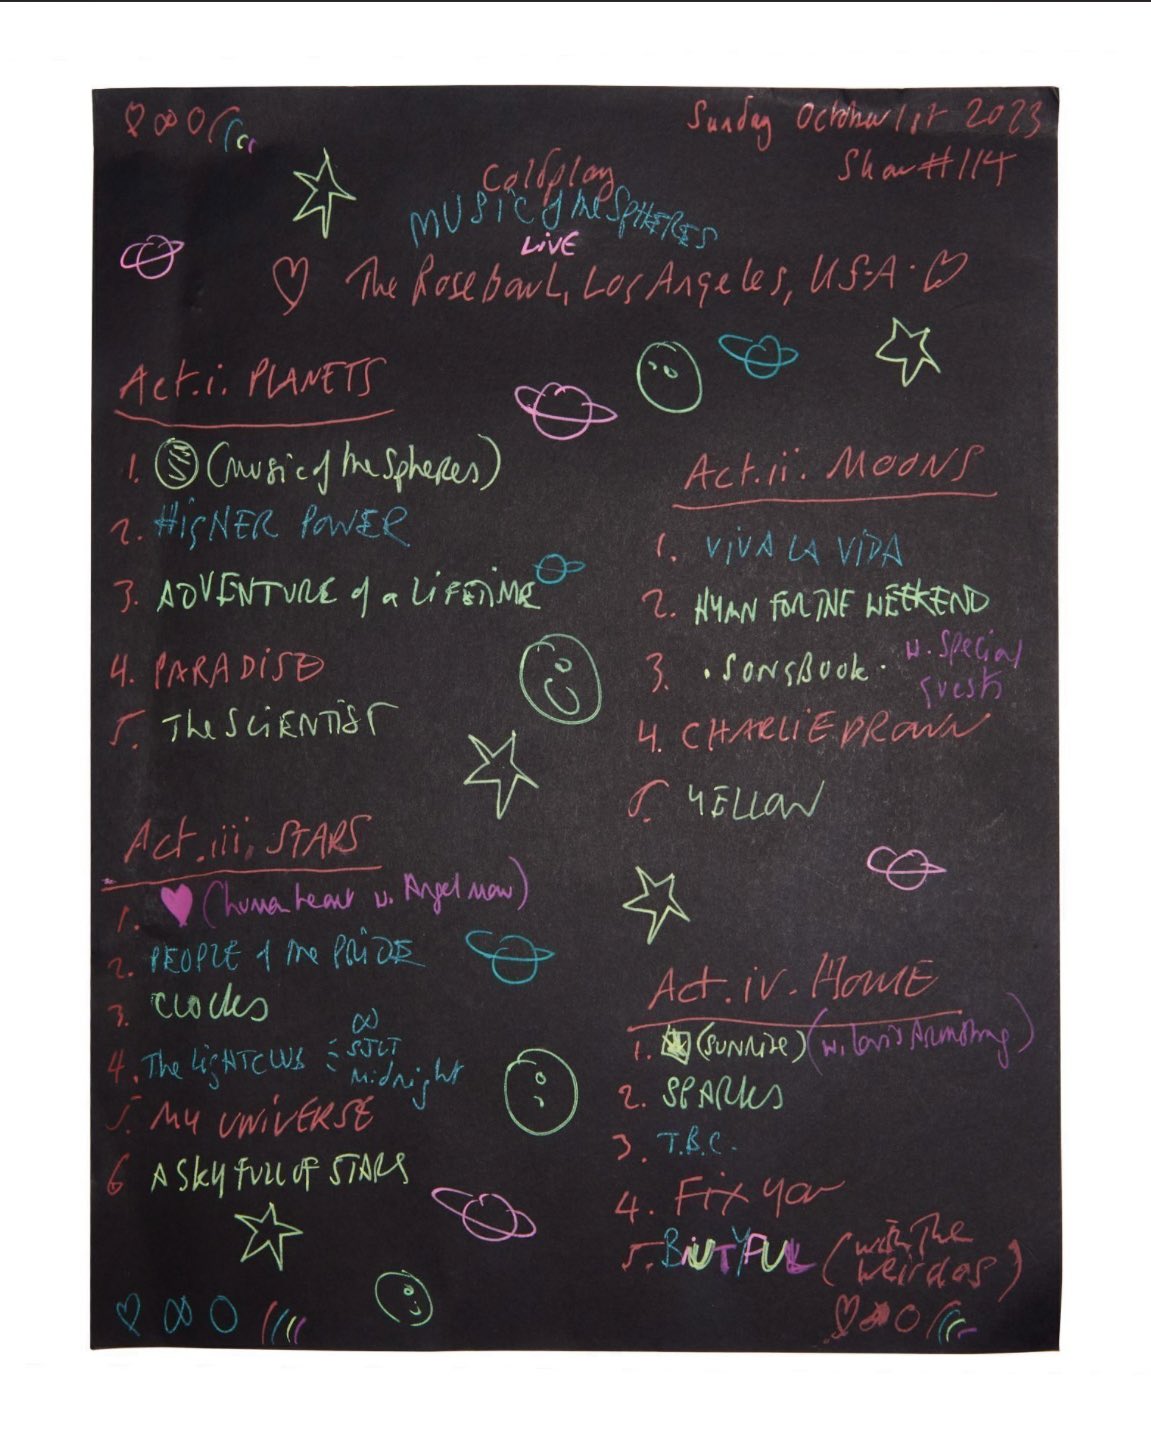 Sunday October 1st 2023
Show #114
Coldplay
MUSiC of the SPHERES
LiVE
The Rosebowl, Los Angeles, U.S.A.
Act.i. PLANETS
1. (Music of the Spheres)
2. HiGHER POWER
3. ADVENTURE of a LiFETiME
4. PARADiSE
5. The SCiENTiST
Act.ii. MOONS
1. ViVA LA ViDA
2. HYMN FOR THE WEEKEND
3. · SONGBOOK · w. special guests
4. CHARLiE BROWN
5. YELLOW
Act.iii. STARS
1. (human heart w. Angel moon)
2. PEOPLE of the PRiDE
3. CLOCKS
4. The LiGHTCLUB ∞
SJLT
Midnight
5. MY UNiVERSE
6 A SKY FULL OF STARS
Act.iv. HOME
1. (SUNRiSE) (w. Louis Armstrong)
2. SPARKS
3. T.B.C.
4. Fix You
5. BiUTYFUL (with The weirdos)